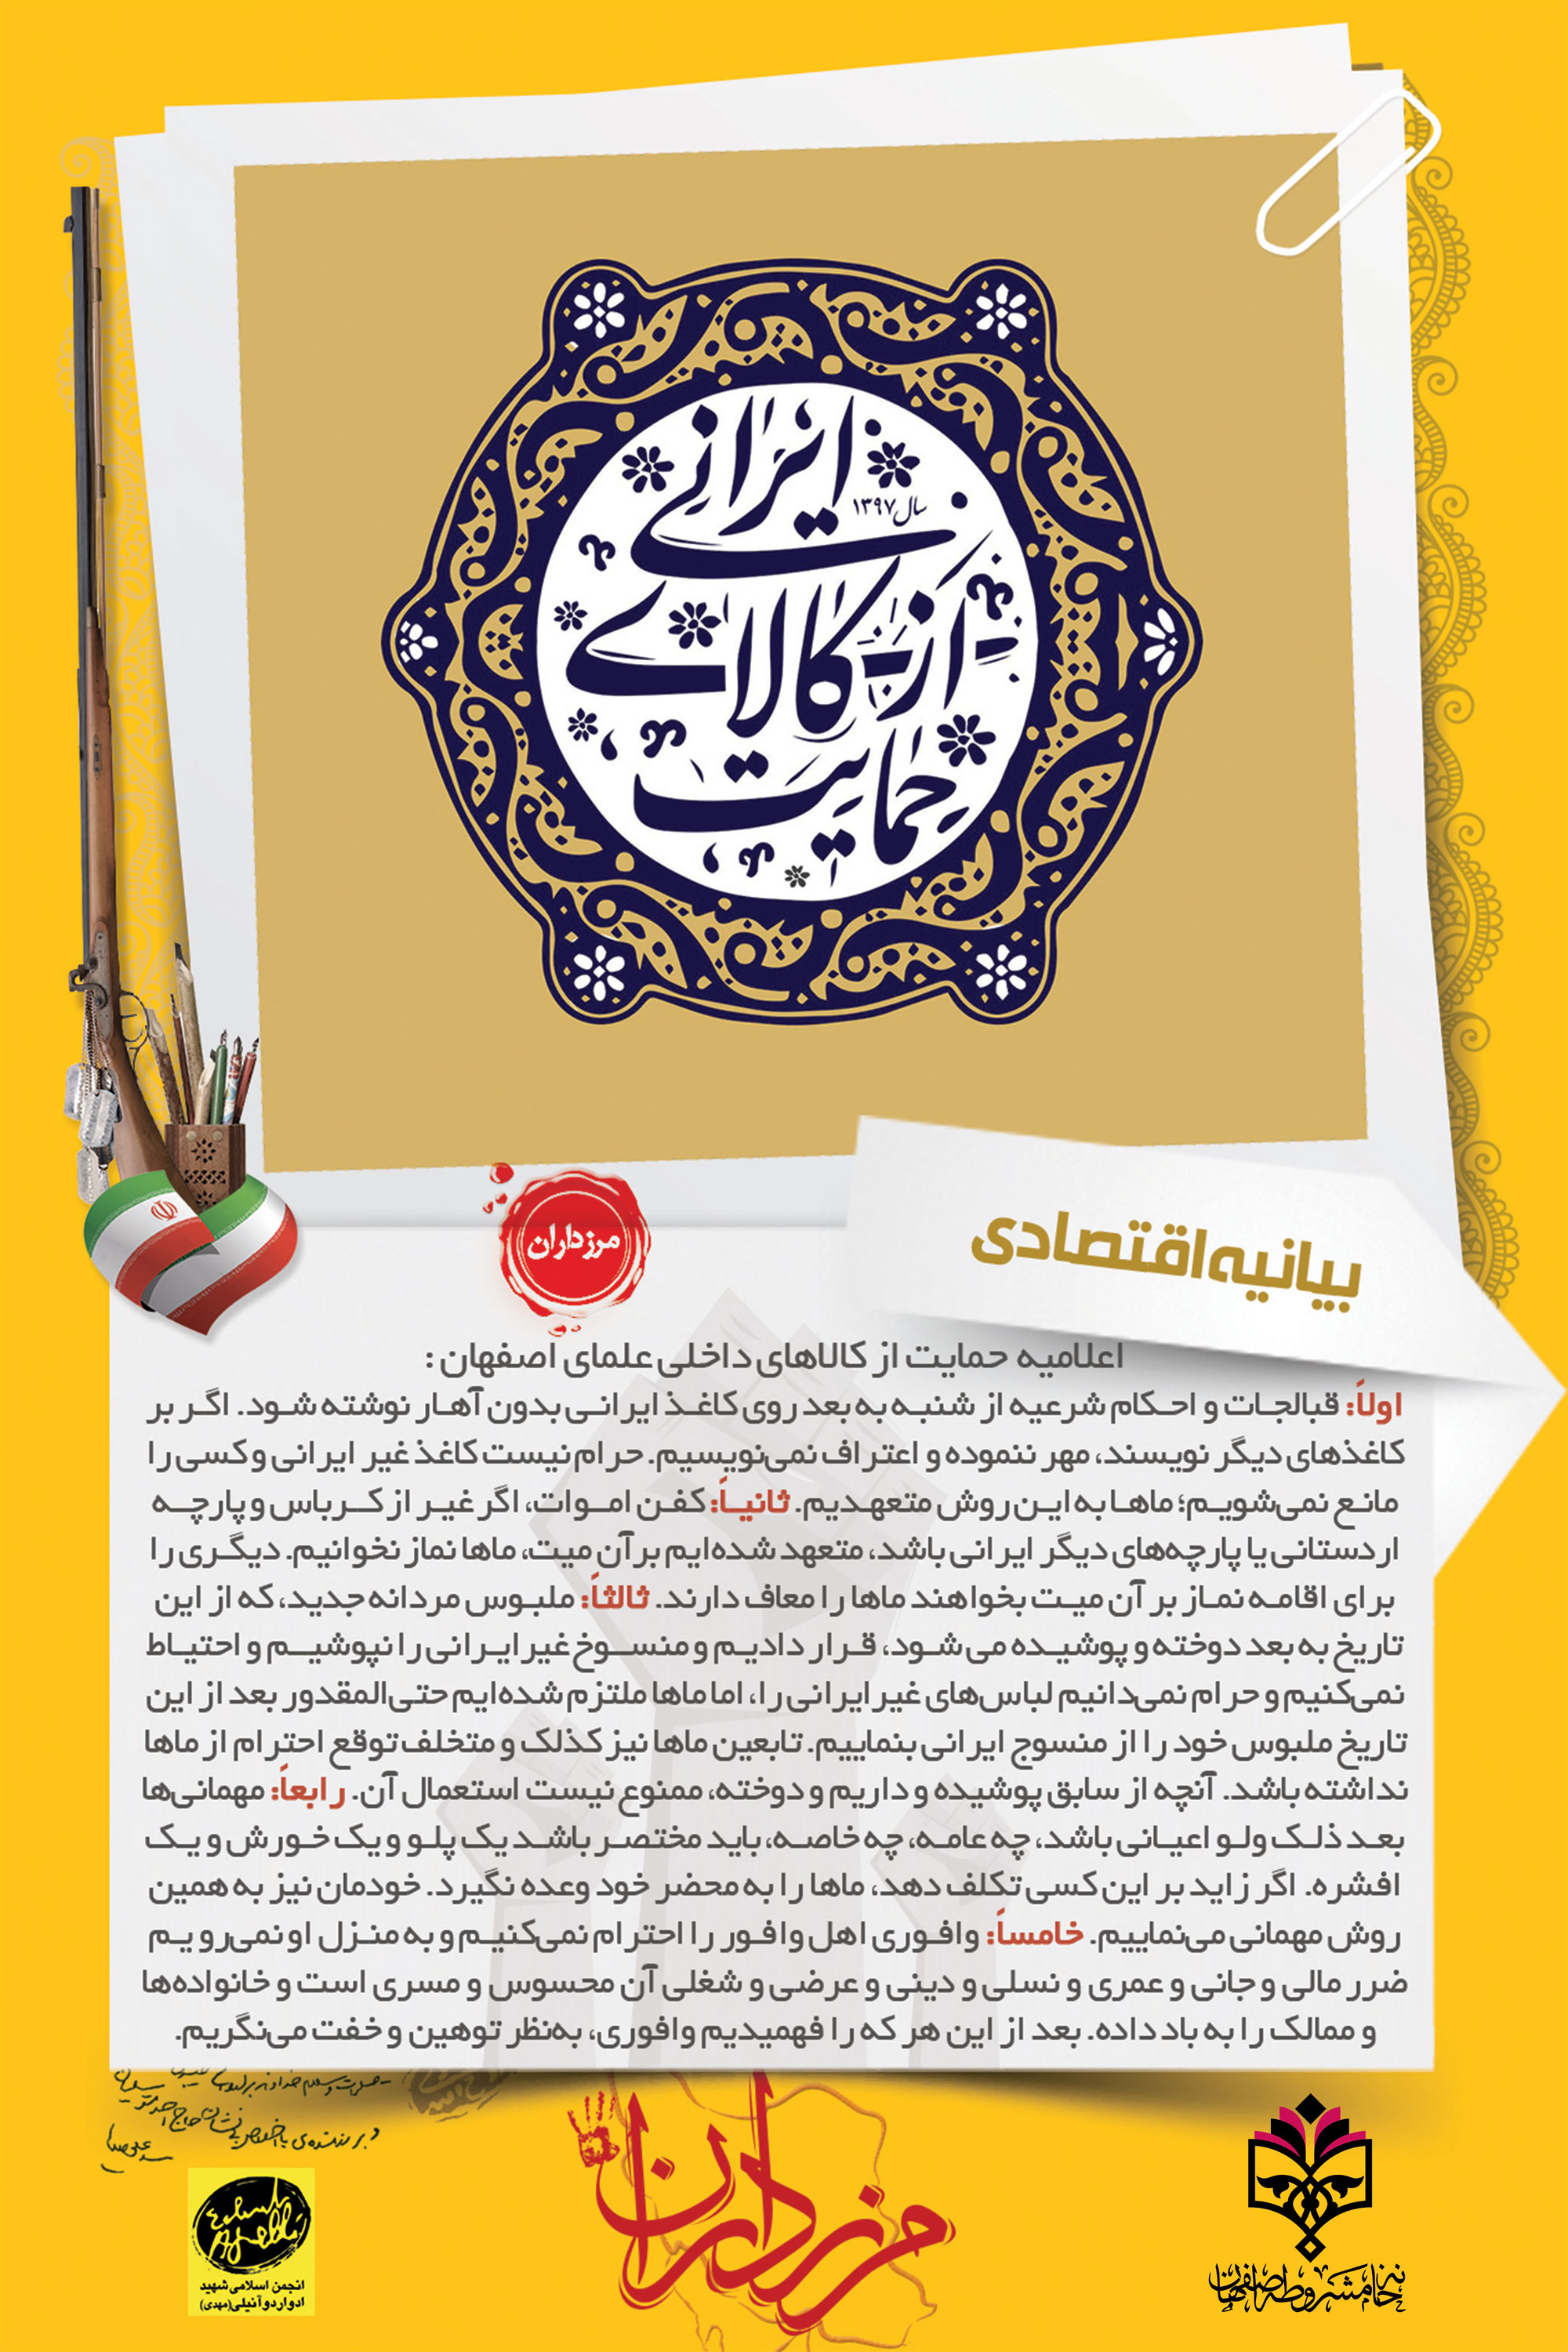 ایرانی
سال ۱۳۹۷
از کالای
حمایت
بیانیه اقتصادی
مرزداران
اعلامیه حمایت از کالاهای داخلی علمای اصفهان :
اولاً: قبالجات و احکام شرعیه از شنبه به بعد روی کاغذ ایرانی بدون آهار نوشته شود. اگر بر
کاغذهای دیگر نویسند، مهر ننموده و اعتراف نمی‌نویسیم. حرام نیست کاغذ غیر ایرانی و کسی را
مانع نمی‌شویم؛ ماها به این روش متعهدیم. ثانیاً: کفن اموات، اگر غیر از کرباس و پارچه
اردستانی یا پارچه‌های دیگر ایرانی باشد، متعهد شده‌ایم بر آن میت، ماها نماز نخوانیم. دیگری را
برای اقامه نماز بر آن میت بخواهند ماها را معاف دارند. ثالثاً: ملبوس مردانه جدید، که از این
تاریخ به بعد دوخته و پوشیده می شود، قرار دادیم و منسوخ غیر ایرانی را نپوشیم و احتیاط
نمی‌کنیم و حرام نمی‌دانیم لباس‌های غیر ایرانی را، اما ماها ملتزم شده‌ایم حتی‌المقدور بعد از این
تاریخ ملبوس خود را از منسوج ایرانی بنماییم. تابعین ماها نیز کذلک و متخلف توقع احترام از ماها
نداشته باشد. آنچه از سابق پوشیده و داریم و دوخته، ممنوع نیست استعمال آن. رابعاً: مهمانی‌ها
بعد ذلک ولو اعیانی باشد، چه عامه، چه خاصه، باید مختصر باشد یک پلو و یک خورش و یک
افشره. اگر زاید بر این کسی تکلف دهد، ماها را به محضر خود وعده نگیرد. خودمان نیز به همین
روش مهمانی می‌نماییم. خامساً: وافوری اهل وافور را احترام نمی‌کنیم و به منزل او نمی‌رویم
ضرر مالی و جانی و عمری و نسلی و دینی و عرضی و شغلی آن محسوس و مسری است و خانواده‌ها
و ممالک را به باد داده. بعد از این هر که را فهمیدیم وافوری، به‌نظر توهین و خفت می‌نگریم.
مرزداران
انجمن اسلامی شهید
ادواردو آنیلی (مهدی)
خانه مشروطه اصفهان